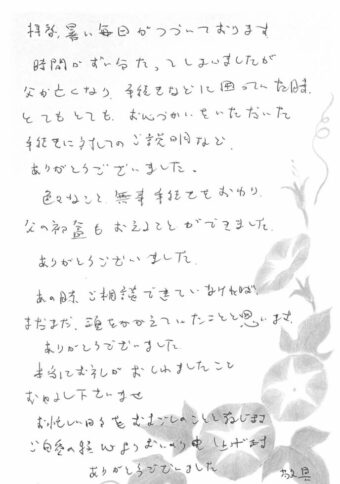 拝啓、暑い毎日がつづいております
時間がずい分たってしまいましたが
父が亡くなり、手続きなどに困っていた時、
とてもとても、お心づかいをいただいた
手続きに対してのご説明など、
ありがとうございました。
色々なこと、無事手続きをおわり、
父の初盆もおえることができました。
ありがとうございました。
あの時、ご相談できていなければ、
まだまだ、頭をかかえていたことと思います。
ありがとうございました
本当におそれがおくれましたこと
お許し下さいませ
お忙しい日々をおすごしのことと存じます
ご自愛の程心よりおいのり申し上げます
ありがとうございました 敬具